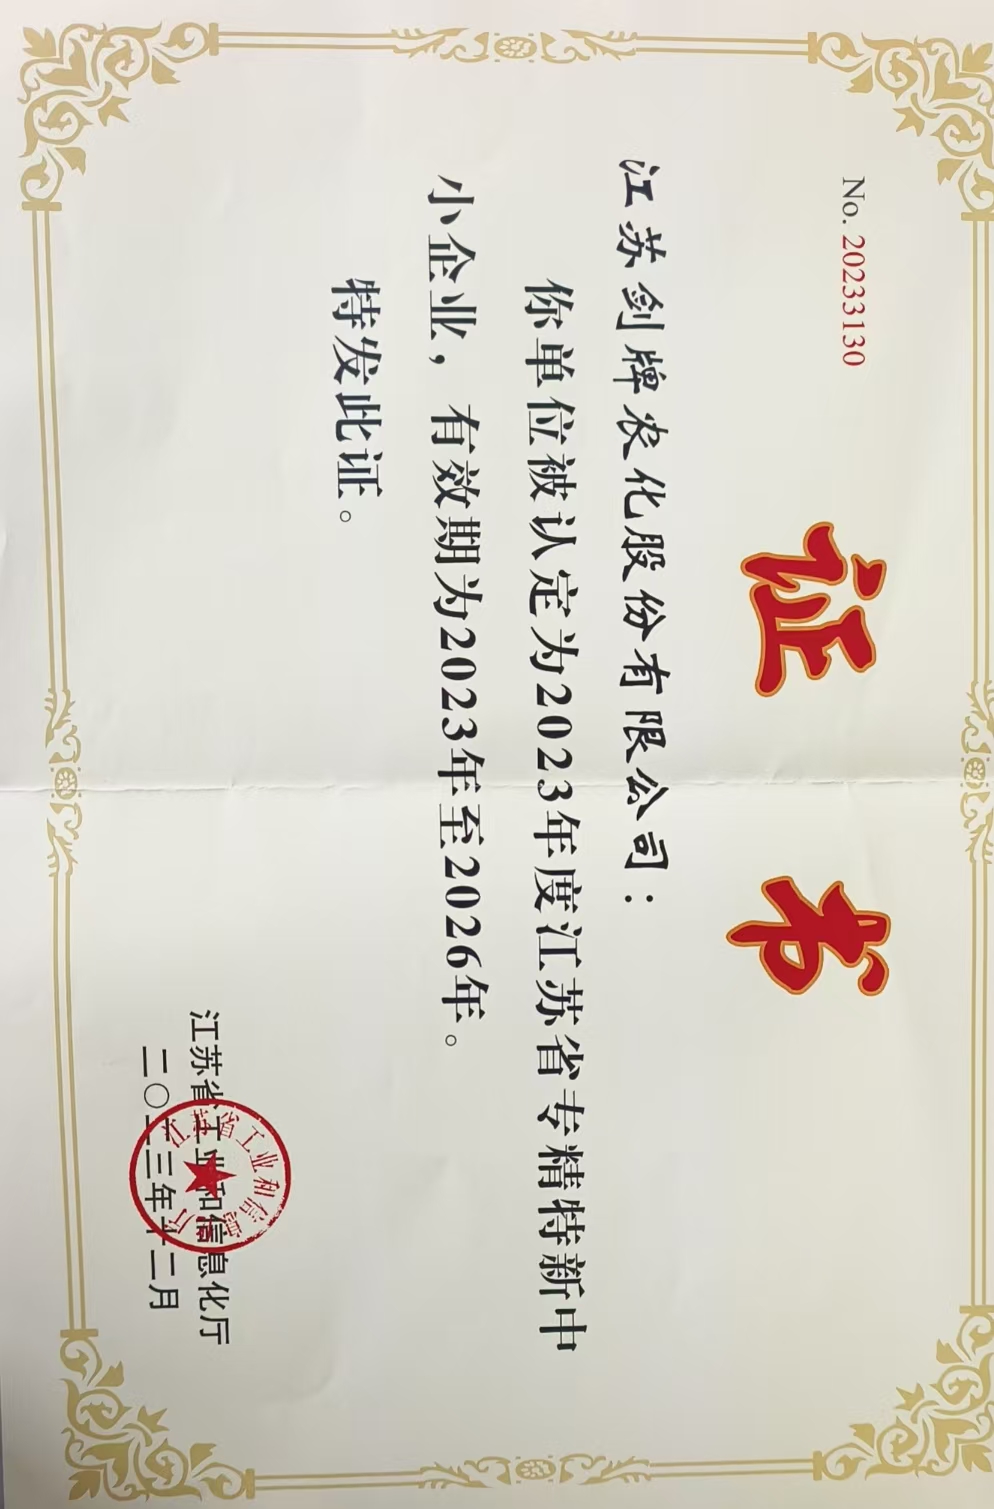 No. 20233130
证书
江苏剑牌农化股份有限公司：
你单位被认定为2023年度江苏省专精特新中
小企业，有效期为2023年至2026年。
特发此证。
江苏省工业和信息化厅
二〇二三年十二月
江苏省工业和信息化厅